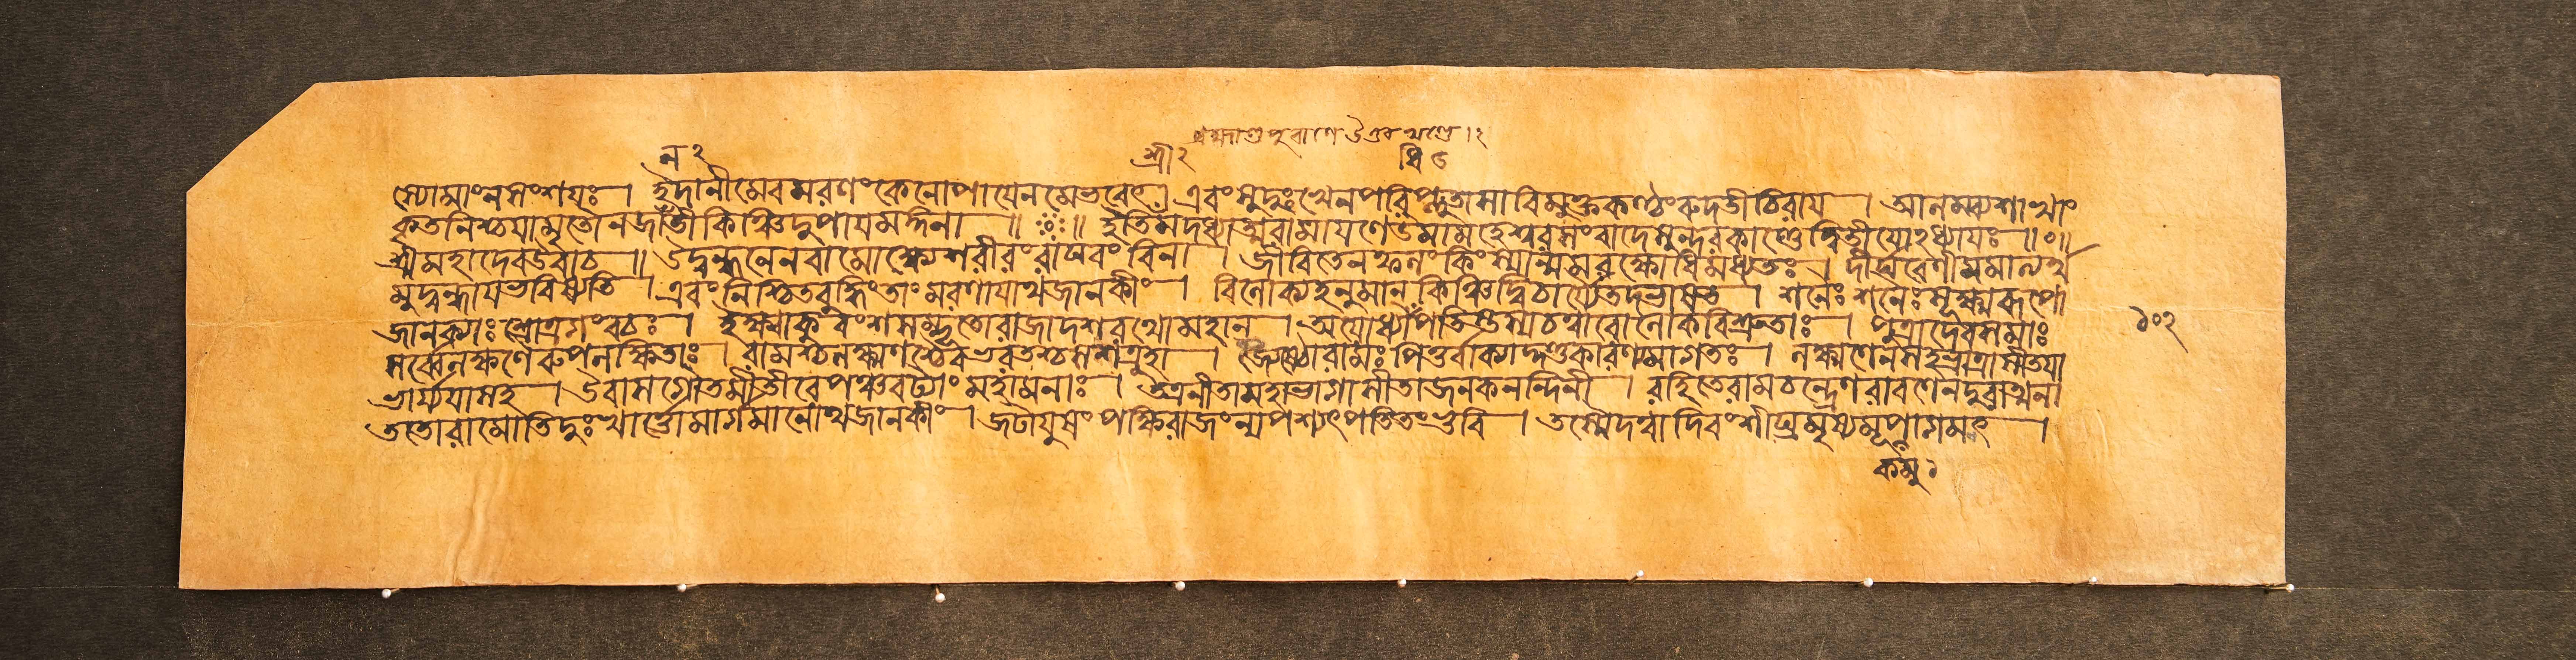 ব্রহ্মাণ্ডপুরাণে উত্তরখণ্ডে।২
ন ২ শ্রী২ ধি ৫
স্যোমাংনসংশয়ঃ। ইদানীমেবমরণংকেনোপায়েনমেভবেৎ। এবংসুদুঃখেনপরিপ্লুতাসাবিমুক্তকণ্ঠংরুদতীচিরায়। আলম্ব্যশাখাং
কৃতনিশ্চয়ামৃতৌনজানতীকিঞ্চিদুপায়মঙ্গনা॥ ॥ ইতিমদধ্যাত্মরামায়ণেউমামহেশ্বরসংবাদেসুন্দরকাণ্ডেদ্বিতীয়োঽধ্যায়ঃ॥০॥
শ্রীমহাদেবউবাচ॥ উদ্বন্ধনেনবামোক্ষ্যেশরীরংরাঘবংবিনা। জীবিতেনফলংকিংস্যান্মমরক্ষোধিমধ্যতঃ। দীর্ঘাবেণীমমাত্যর্থ
মুদ্বন্ধায়ভবিষ্যতি। এবংনিশ্চিতবুদ্ধিংতাংমরণায়াথজানকীং। বিলোক্যহনুমানকিঞ্চিদ্বিচার্য্যৈতদভাষত। শনৈঃশনৈঃসূক্ষ্মরূপো
জানক্যাঃশ্রোত্রগংবচঃ। ইক্ষ্বাকুবংশসম্ভূতোরাজাদশরথোমহান। অযোধ্যাধিপতিস্তস্যচত্বারোলোকবিশ্রুতাঃ। পুত্রাদেবসমাঃ
সর্ব্বেলক্ষণৈরুপলক্ষিতাঃ। রামশ্চলক্ষ্মণশ্চৈবভরতশ্চসশত্রুহা। জ্যেষ্ঠোরামঃপিতুর্বাক্যাদ্দণ্ডকারণ্যমাগতঃ। লক্ষ্মণেনসহভ্রাত্রাসীতয়া
ভার্য্যয়াসহ। উবাসগৌতমীতীরেপঞ্চবট্যাংমহামনাঃ। তত্রনীতামহাভাগাসীতাজনকনন্দিনী। রহিতেরামচন্দ্রেণরাবণেনদুরাত্মনা
ততোরামোতিদুঃখার্ত্তোমার্গমানোথজানকীং। জটায়ুষংপক্ষিরাজংন্মপশ্যৎপতিতংভুবি। তস্মৈদত্বাদিবংশীঘ্রমৃষ্যমূপাগমৎ।
কম২
১০২